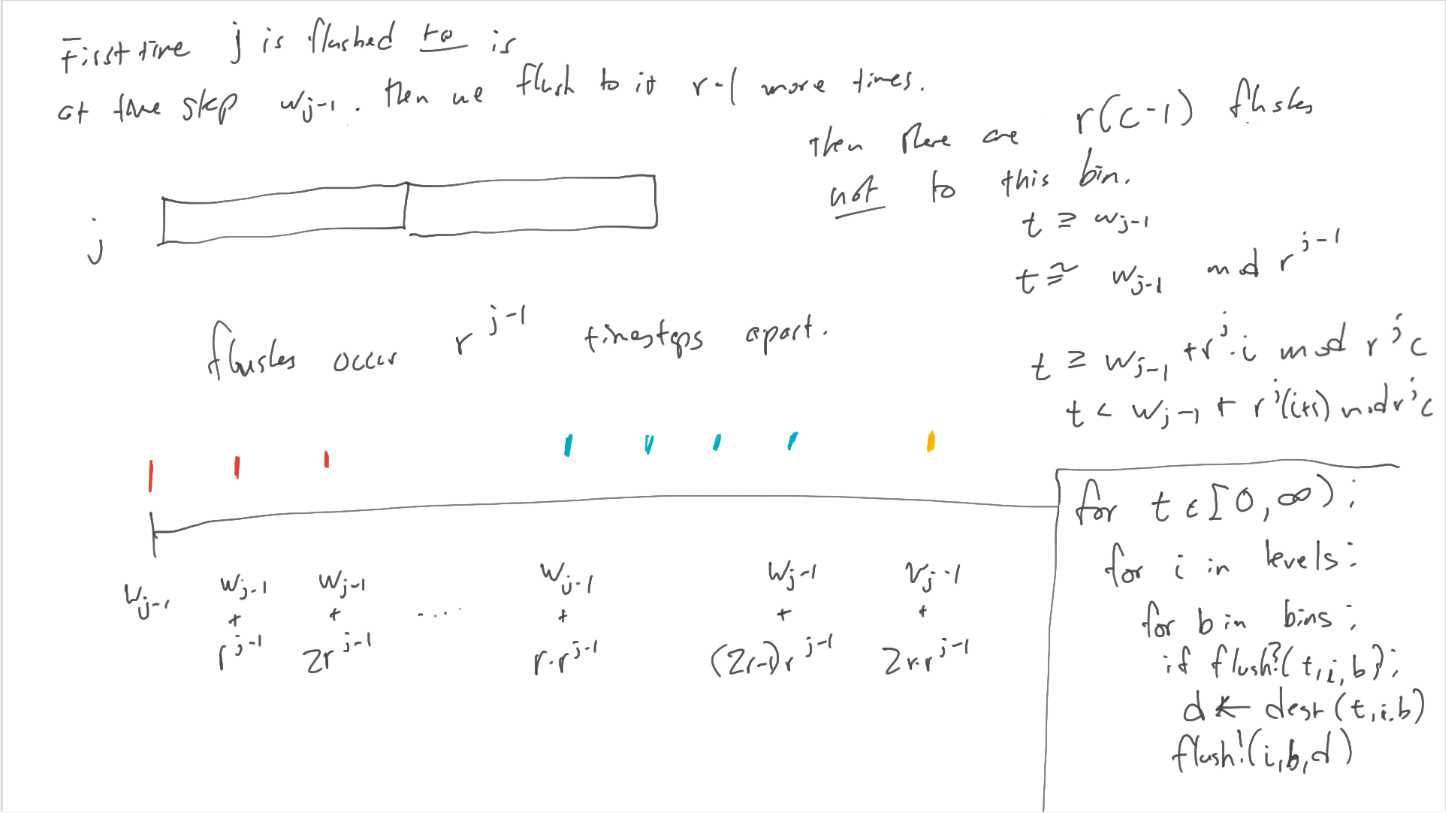 First time j is flushed to is
at time step w_{j-1}. Then we flush to it r-1 more times.
Then there are r(c-1) flushes
not to this bin.
j
t ≥ w_{j-1}
t ≅ w_{j-1} mod r^{j-1}
flushes occur r^{j-1} timesteps apart.
t ≥ w_{j-1} + r^j·i mod r^j c
t < w_{j-1} + r^j(i+1) mod r^j c
w_{j-1} w_{j-1} + r^{j-1} w_{j-1} + 2r^{j-1} .... w_{j-1} + r·r^{j-1} w_{j-1} + (2r-1)r^{j-1} w_{j-1} + 2r·r^{j-1}
for t ∈ [0, ∞):
for i in levels:
for b in bins:
if flush?(t,i,b):
d ← dest(t,i,b)
flush!(i,b,d)